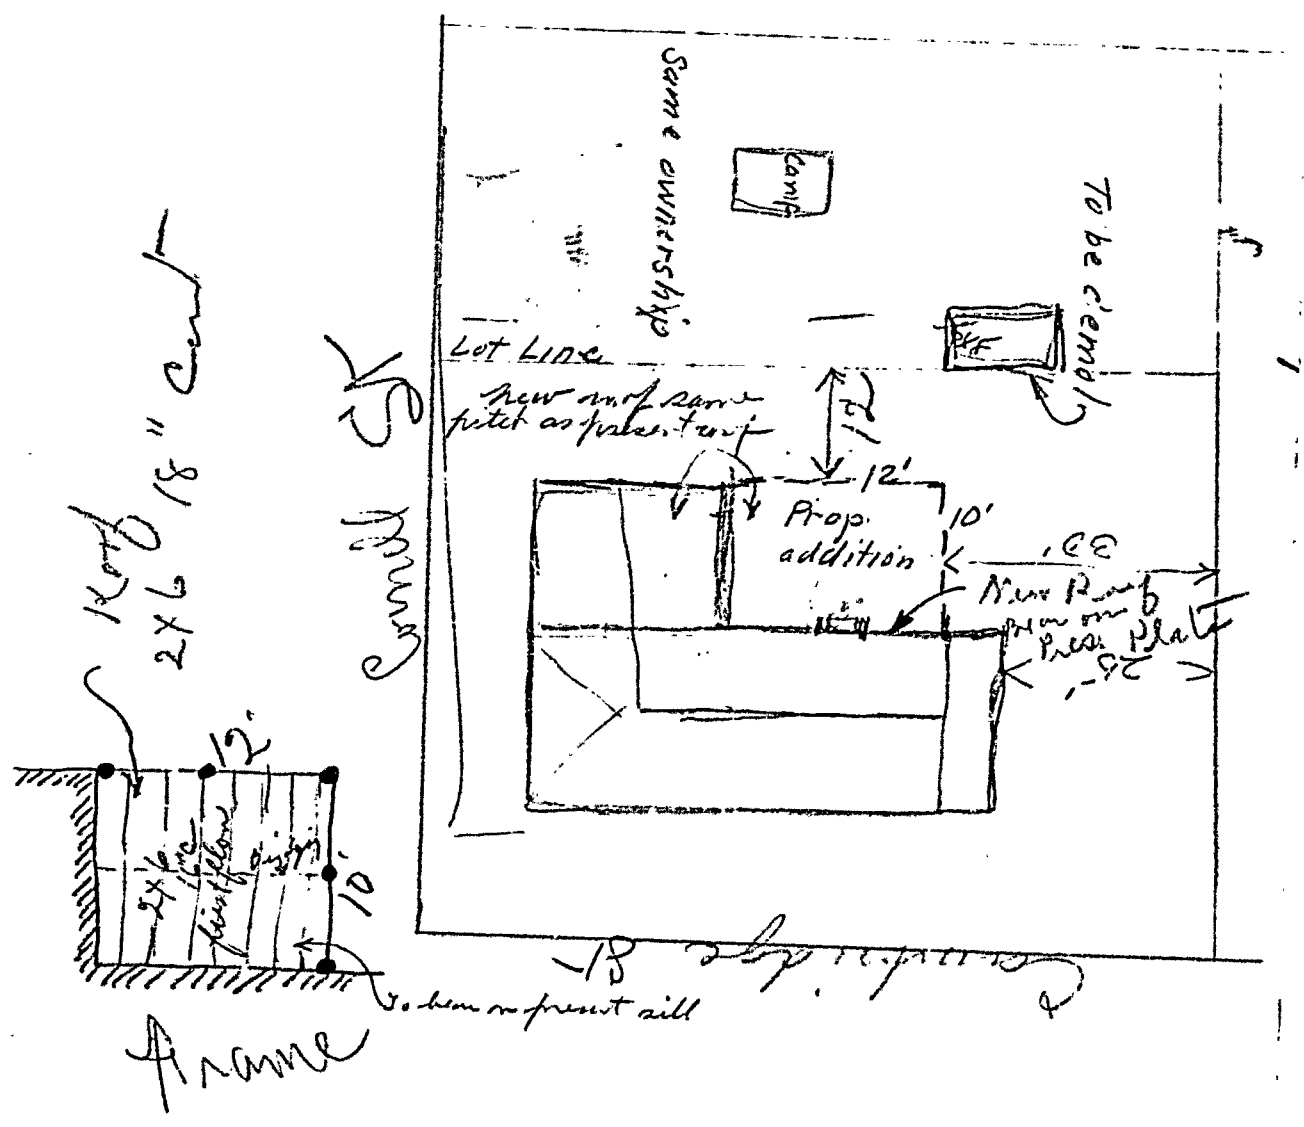 Same ownership
To be demol
Lot Line
new roof same
pitch as present
12'
12'
Prop.
addition
10'
33'
New Roof
bear on
Pres. Plate
25'
Carroll St
Cambridge St
Roof
2x6 18" Cent
12'
10'
2x6
16"
first floor
To bear on present sill
Frame